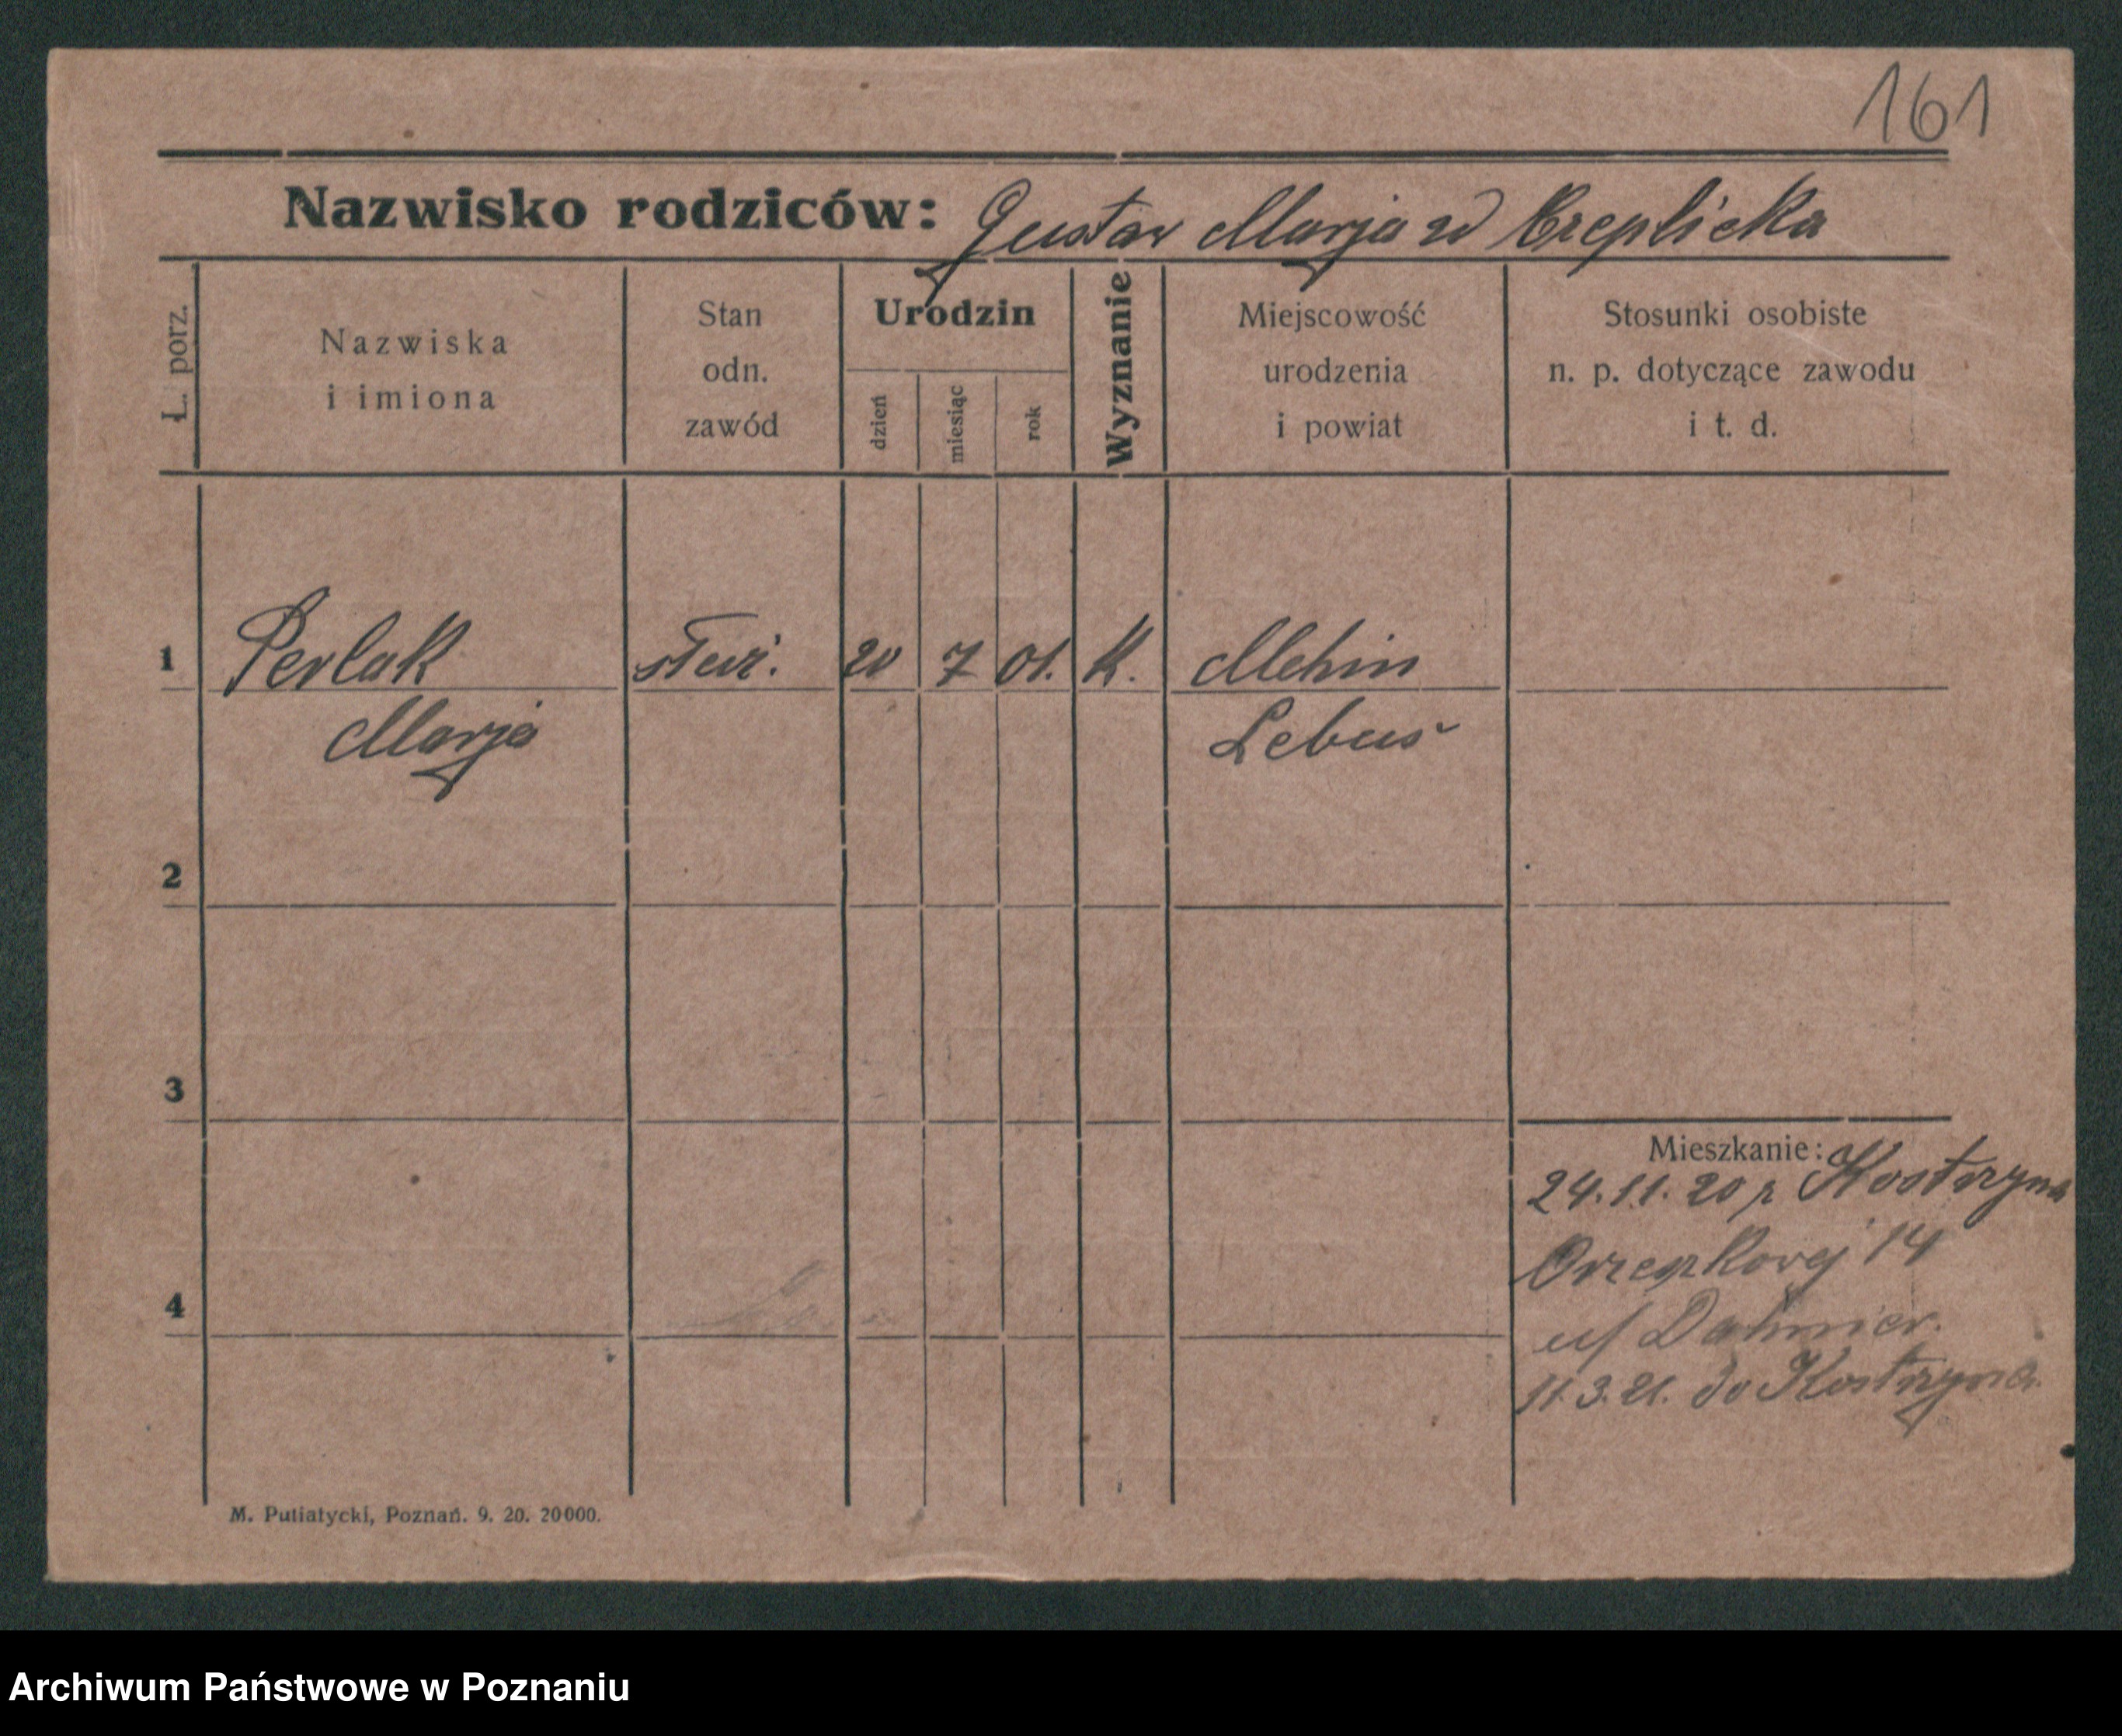 161
Nazwisko rodziców: Gustav Marja zd Czeplicka
L. porz.
Nazwiska
i imiona
Stan
odn.
zawód
Urodzin
dzień
miesiąc
rok
Wyznanie
Miejscowość
urodzenia
i powiat
Stosunki osobiste
n. p. dotyczące zawodu
i t. d.
1 Perlak służ. 20 7 01. K.
Marja Lebus
2
3
Mieszkanie:
24.11.20 z Kostrzyna
14
4
u/
11.3.21. do Kostrzyna
M. Putiatycki, Poznań. 9. 20. 20000.
Archiwum Państwowe w Poznaniu